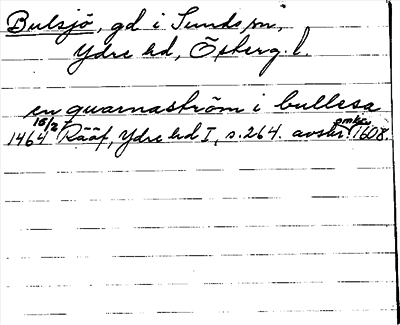 Bulsjö, gd i Sunds sn,
Ydre hd, Österg. l.
en quarnaström i bullesa
1464 15/2 Rääf, Ydre hd I, s. 264. avskr. 1608.